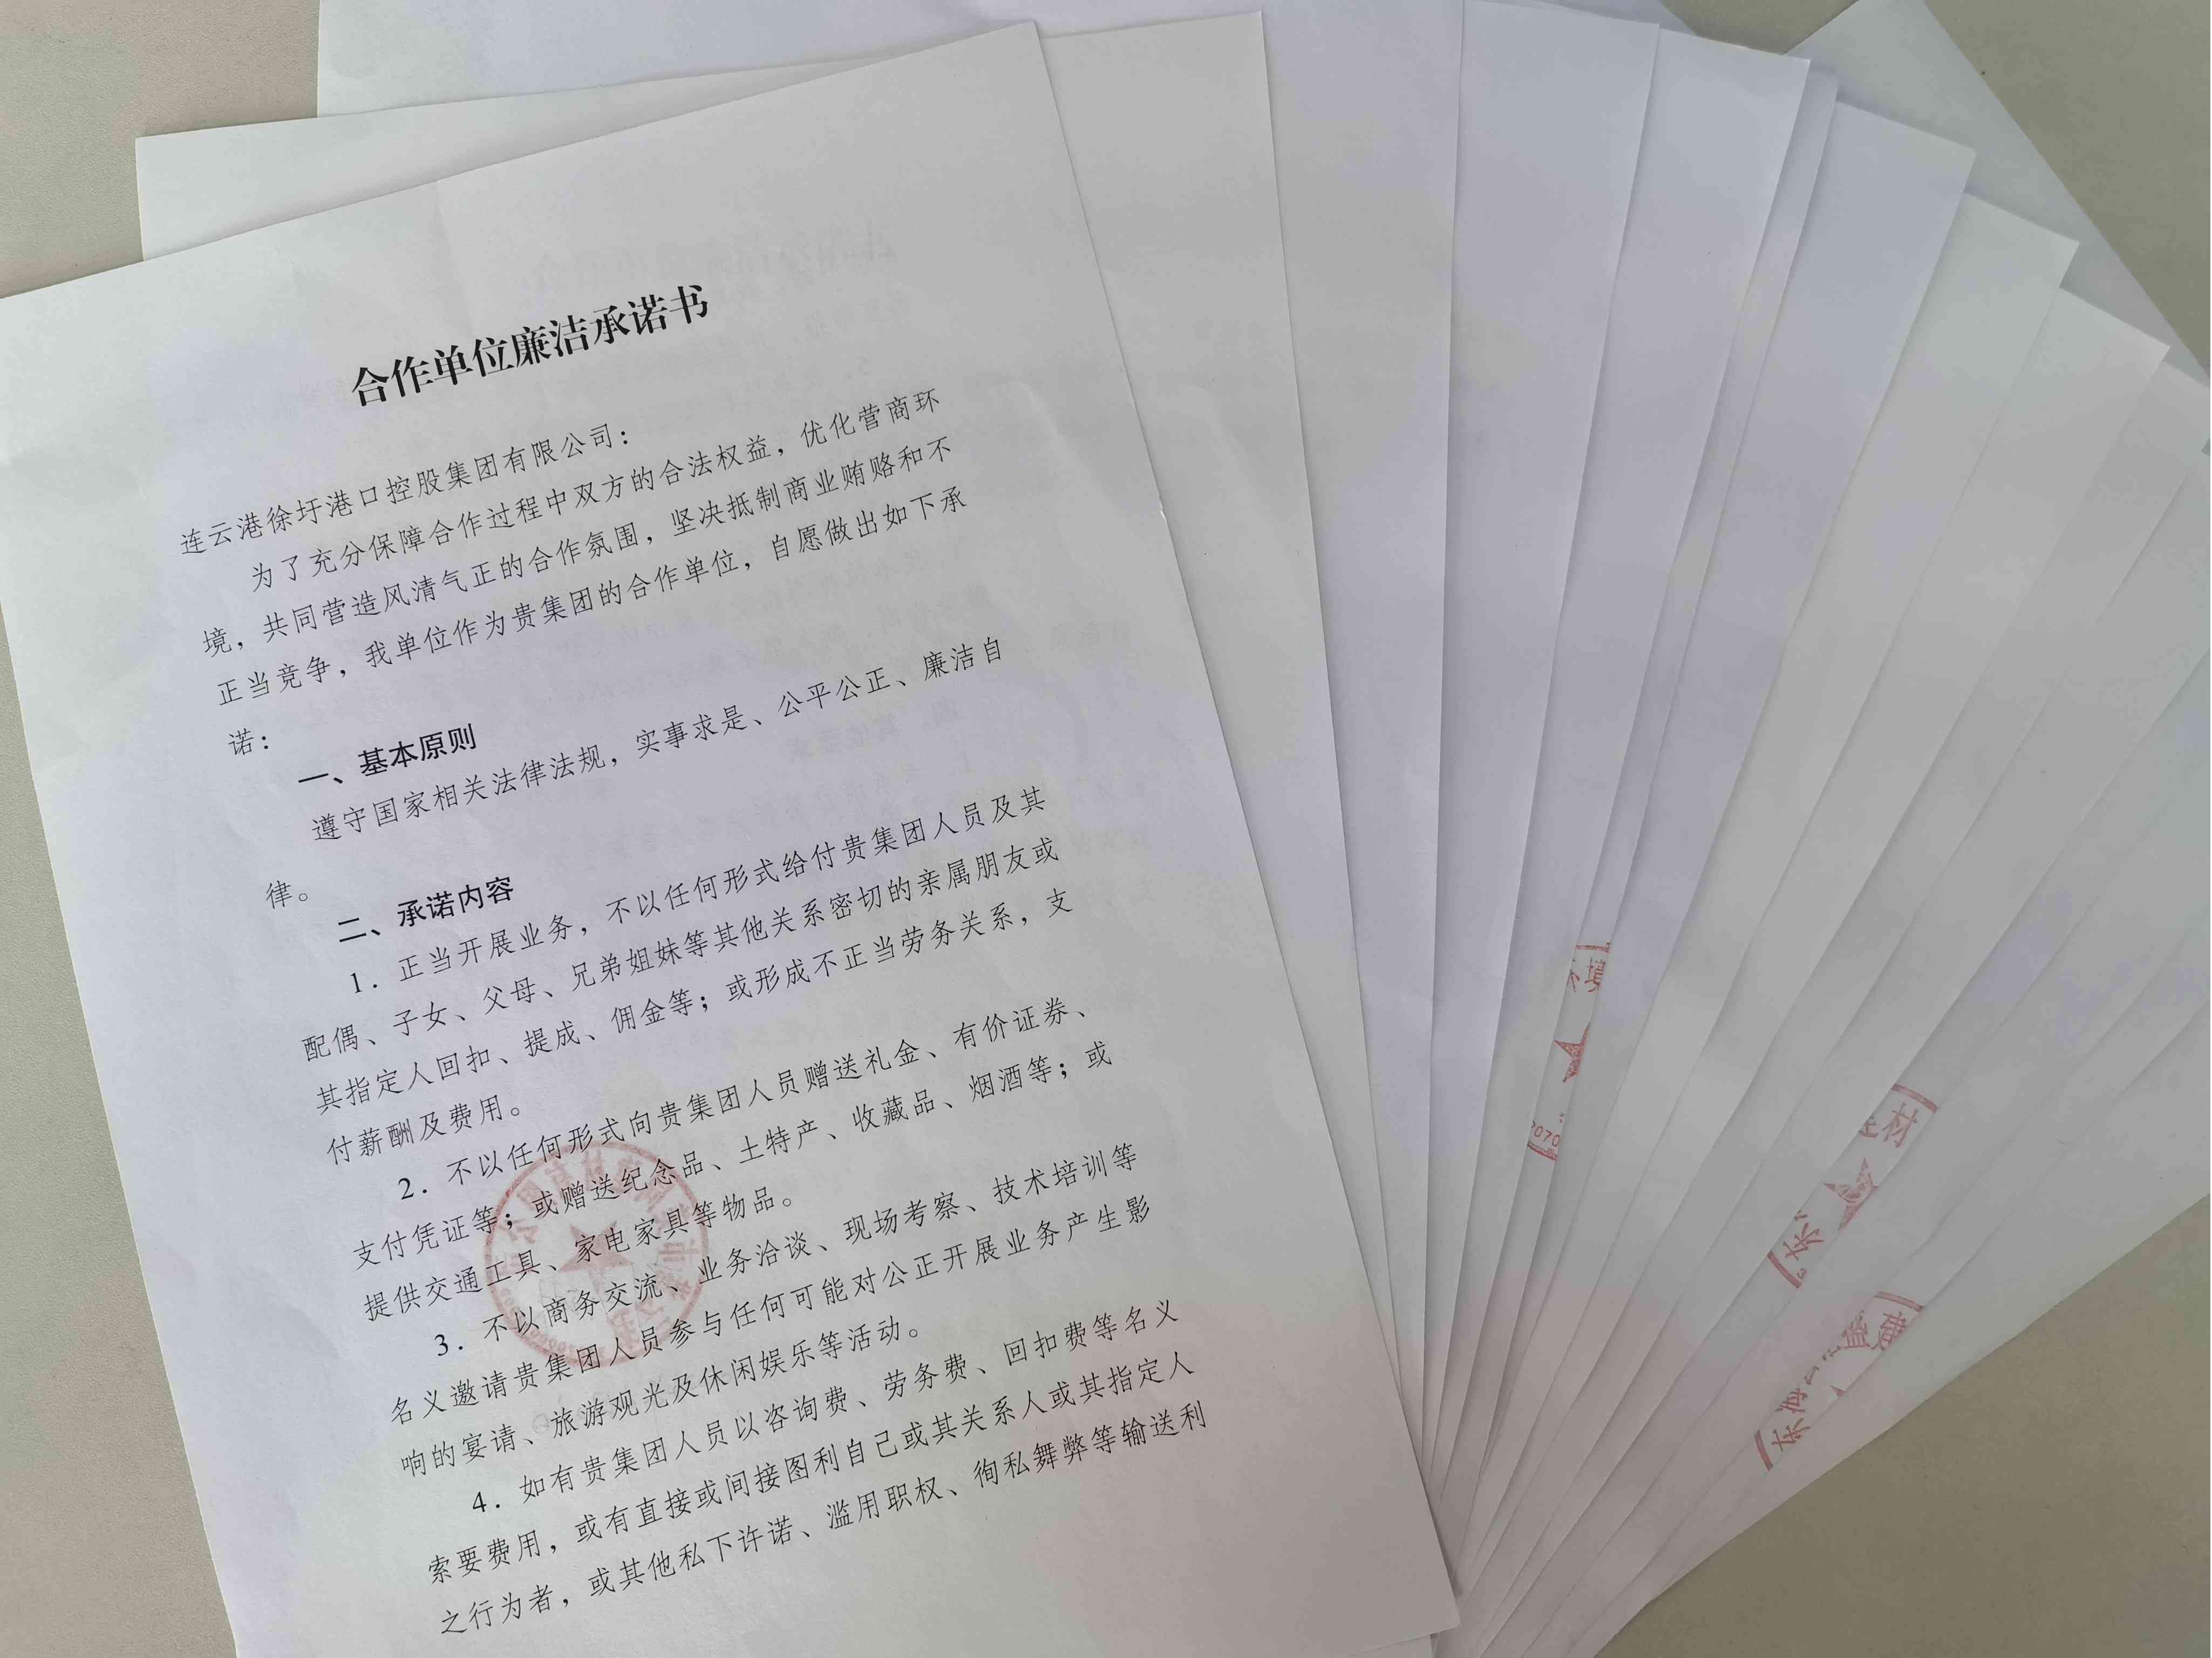 合作单位廉洁承诺书
连云港徐圩港口控股集团有限公司：
为了充分保障合作过程中双方的合法权益，优化营商环
境，共同营造风清气正的合作氛围，坚决抵制商业贿赂和不
正当竞争，我单位作为贵集团的合作单位，自愿做出如下承
诺：
一、基本原则
遵守国家相关法律法规，实事求是、公平公正、廉洁自
律。
二、承诺内容
1. 正当开展业务，不以任何形式给付贵集团人员及其
配偶、子女、父母、兄弟姐妹等其他关系密切的亲属朋友或
其指定人回扣、提成、佣金等；或形成不正当劳务关系，支
付薪酬及费用。
2. 不以任何形式向贵集团人员赠送礼金、有价证券、
支付凭证等；或赠送纪念品、土特产、收藏品、烟酒等；或
提供交通工具、家电家具等物品。
3. 不以商务交流、业务洽谈、现场考察、技术培训等
名义邀请贵集团人员参与任何可能对公正开展业务产生影
响的宴请、旅游观光及休闲娱乐等活动。
4. 如有贵集团人员以咨询费、劳务费、回扣费等名义
索要费用，或有直接或间接图利自己或其关系人或其指定人
之行为者，或其他私下许诺、滥用职权、徇私舞弊等输送利
境
070
材
东
监
东